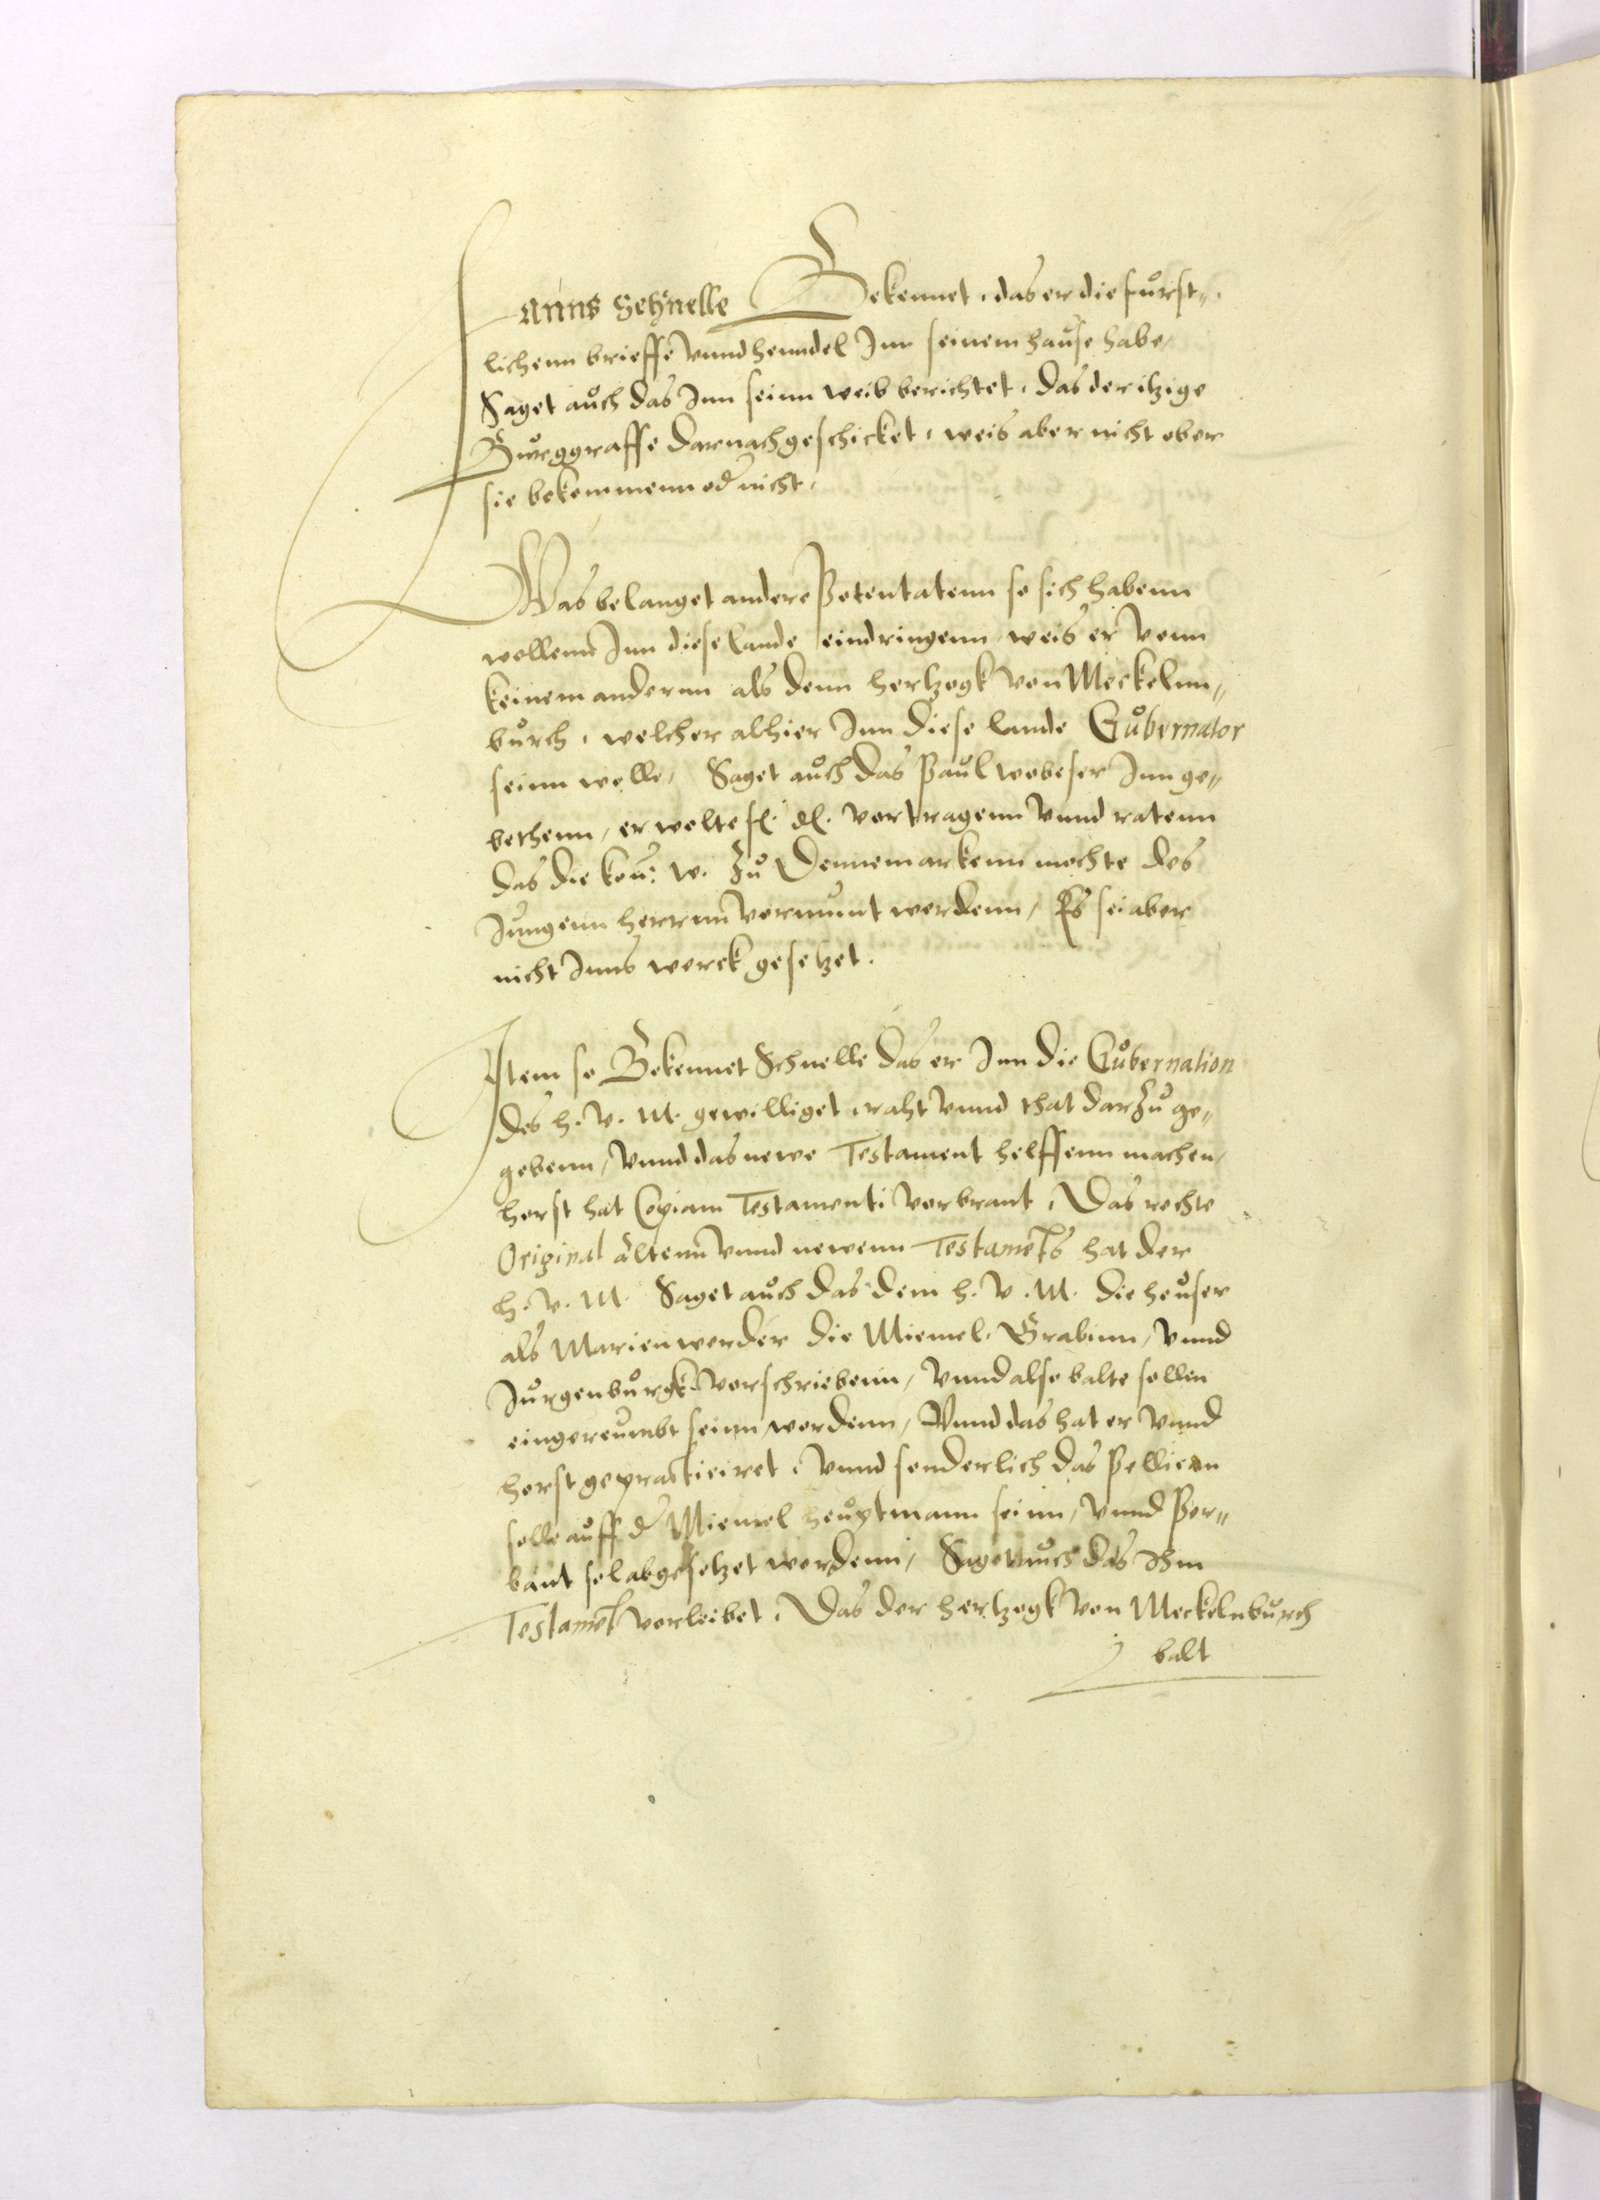 Hanns Schnelle Bekennet, das er die fürst„
lichenn brieffe vnnd henndel Inn seinem hause habe,
Saget auch das Inn seinn weib berichtet, das der itzige
Burggraffe darnach geschicket, weis aber nicht ober
sie bekommenn od nicht,
Was belanget andere Potentatenn so sich habenn
wollenn Inn diese lande eindringenn weis er vonn
keinem andernn als denn hertzogk von Meckelnn„
burch, welcher alhier Inn diese lande Gubernator
seinn wolle, Saget auch das Paul wobeser Inn ge„
bethenn, er wolte fl. dl. vortragenn vnnd ratenn
das die kou: w. zu Dennemarkenn mochte des
Jungenn herrnn vormunt werdenn, Es sei aber
nicht Inns werck gesetzet.
Item so Bekennet Schnelle das er Inn die Gubernation
des h. v. M. gewilliget, raht vnnd that darzu ge„
gebenn, vnnd das newe Testament helffenn machen,
horst hat Copiam Testamenti vorbrant, Das rechte
Original altenn vnnd newenn Testamets hat der
h. v. M. Saget auch das dem h. v. M. die heuser
als Marienwerder die Miemel, Grabinn, vnnd
Jurgenburgk vorschriebenn, vnnd also balte sollen
eingereumbt seinn worden, Vnnd das hat er vnnd
horst gepracticiret, vnnd sonderlich das Pellicon
solle auff d Miemel heuptmann seinn, vnnd Por„
bant sol abgesetzet werdenn, Saget auch das Ihm
Testamet vorleibet, Das der hertzogk von Meckelnburch
balt